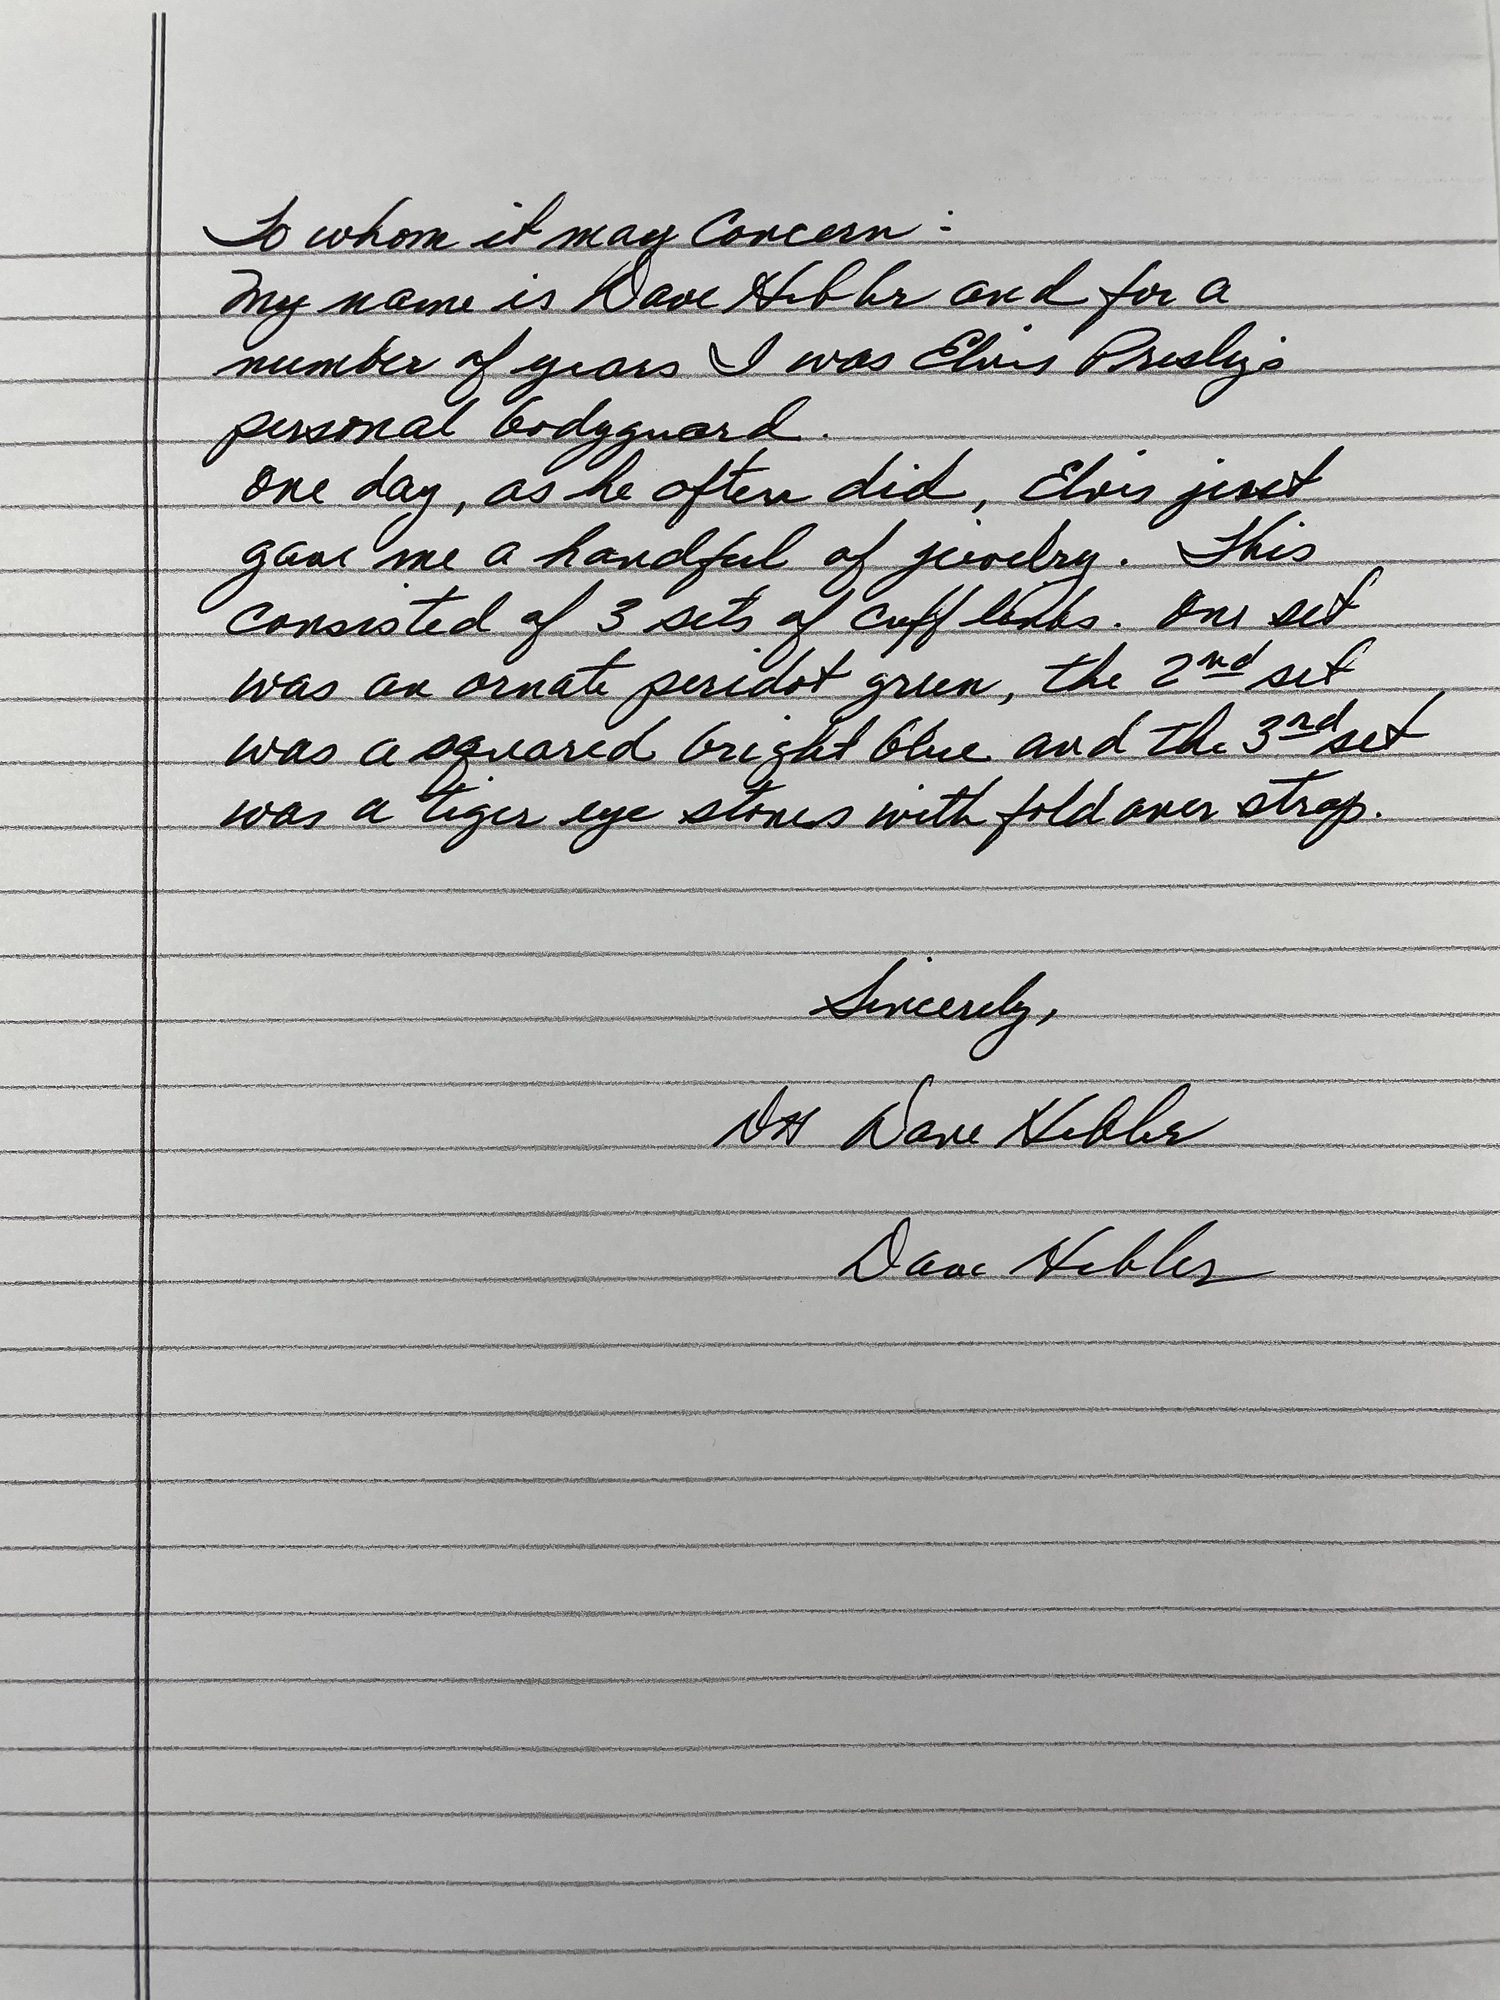 To whom it may Concern:
My name is Dave Hebler and for a
number of years I was Elvis Presley's
personal bodyguard.
One day, as he often did, Elvis just
gave me a handful of jewelry. This
consisted of 3 sets of cuff links. One set
was an ornate peridot green, the 2nd set
was a squared bright blue and the 3rd set
was a tiger eye stones with fold over strap.
Sincerely,
DH Dave Hebler
Dave Hebler